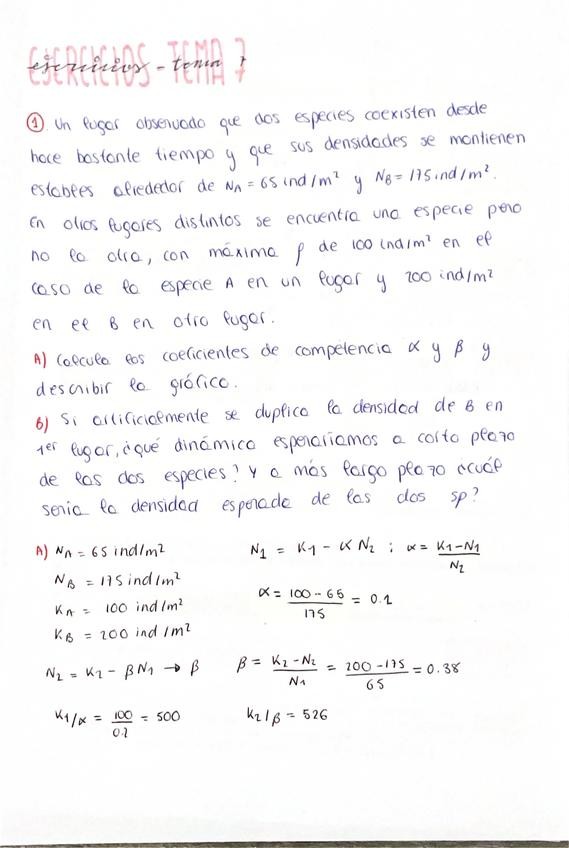 EJERCICIOS - TEMA 7
ejercicios - tema 7
① Un lugar observado que dos especies coexisten desde
hace bastante tiempo y que sus densidades se mantienen
estables alrededor de NA = 65 ind/m² y NB = 175 ind/m².
En otros lugares distintos se encuentra una especie pero
no la otra, con máxima ρ de 100 ind/m² en el
caso de la especie A en un lugar y 200 ind/m²
en el B en otro lugar.
A) Calcula los coeficientes de competencia α y β y
describir la gráfica.
B) Si artificialmente se duplica la densidad de B en
1er lugar, ¿qué dinámica esperaríamos a corto plazo
de las dos especies? Y a más largo plazo ¿cuál
sería la densidad esperada de las dos sp?
A) NA = 65 ind/m² N1 = K1 - α N2 ; α = K1-N1 / N2
NB = 175 ind/m²
KA = 100 ind/m² α = 100-65 / 175 = 0.2
KB = 200 ind/m²
N2 = K2 - βN1 → β β = K2-N2 / N1 = 200-175 / 65 = 0.38
K1/α = 100 / 0.2 = 500 K2/β = 526